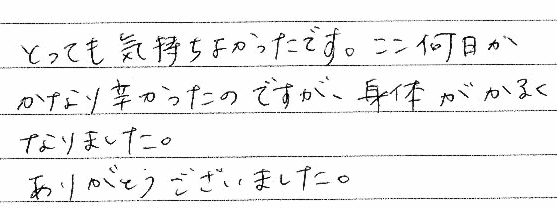 とっても気持ちよかったです。ここ何日か
かなり辛かったのですが、身体がかるく
なりました。
ありがとうございました。